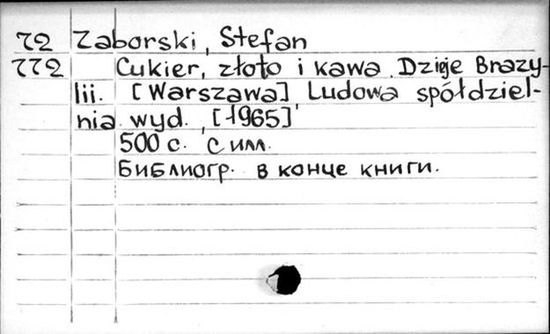 72 Zaborski, Stefan
772 Cukier, złoto i kawa. Dzieje Brazy-
lii. [Warszawa], Ludowa spółdziel-
nia wyd., [1965]
500 с. с илл.
Библиогр. в конце книги.